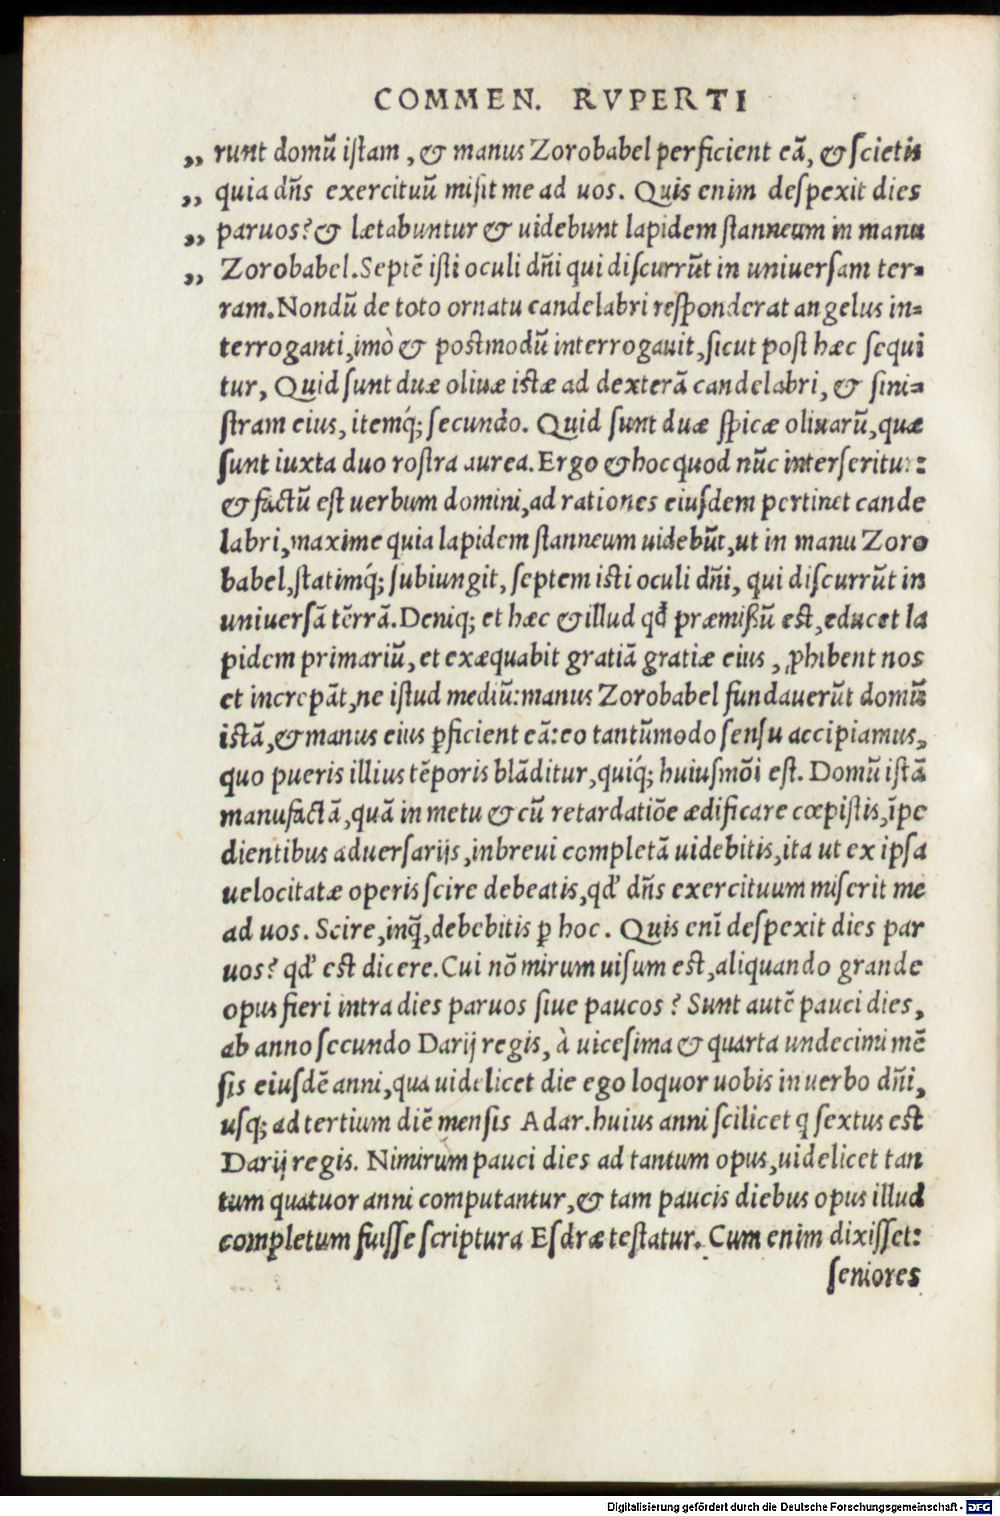 COMMEN. RVPERTI
„ runt domū istam, & manus Zorobabel perficient eā, & scietis
„ quia dn̄s exercituū misit me ad uos. Quis enim despexit dies
„ paruos? & lætabuntur & uidebunt lapidem stanneum in manu
„ Zorobabel. Septē isti oculi dn̄i qui discurrūt in uniuersam ter=
ram. Nondū de toto ornatu candelabri responderat angelus in=
terroganti, imò & postmodū interrogauit, sicut post hæc sequi
tur, Quid sunt duæ oliuæ istæ ad dexterā candelabri, & sini=
stram eius, itemq́; secundo. Quid sunt duæ spicæ oliuarū, quæ
sunt iuxta duo rostra aurea. Ergo & hoc quod nūc interseritur:
& factū est uerbum domini, ad rationes eiusdem pertinet cande
labri, maxime quia lapidem stanneum uidebūt, ut in manu Zoro
babel, statimq́; subiungit, septem isti oculi dn̄i, qui discurrūt in
uniuersā tērrā. Deniq; et hæc & illud qđ præmißū est, educet la
pidem primariū, et exæquabit gratiā gratiæ eius, ꝓhibent nos
et increpāt, ne istud mediū: manus Zorobabel fundauerūt domū
istā, & manus eius ꝑficient eā: eo tantūmodo sensu accipiamus,
quo pueris illius tēporis blāditur, quiq́; huiusmōi est. Domū istā
manufactā, quā in metu & cū retardatiōe ædificare cœpistis, īpe
dientibus aduersarijs, inbreui completā uidebitis, ita ut ex ipsa
uelocitatæ operis scire debeatis, qđ dn̄s exercituum miserit me
ad uos. Scire, inq̄, debebitis ꝑ hoc. Quis enī despexit dies par
uos? qđ est dicere. Cui nō mirum uisum est, aliquando grande
opus fieri intra dies paruos siue paucos? Sunt autē pauci dies,
ab anno secundo Darij regis, à uicesima & quarta undecimi mē
sis eiusdē anni, qua uidelicet die ego loquor uobis in uerbo dn̄i,
usq; ad tertium diē mensis Adar. huius anni scilicet q sextus est
Darij regis. Nimirum pauci dies ad tantum opus, uidelicet tan
tum quatuor anni computantur, & tam paucis diebus opus illud
completum fuisse scriptura Esdræ testatur. Cum enim dixisset:
seniores
Digitalisierung gefördert durch die Deutsche Forschungsgemeinschaft - DFG